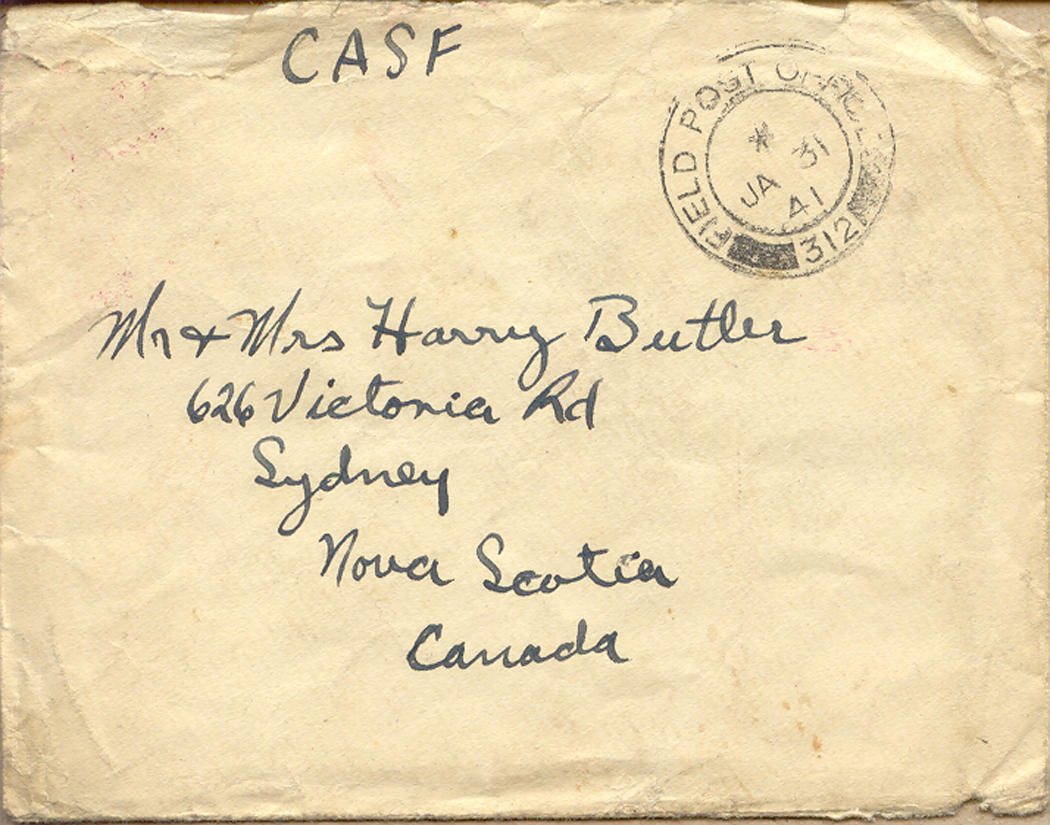 CASF
FIELD POST OFFICE
*
JA 31
41
312
Mr & Mrs Harry Butler
626 Victoria Rd
Sydney
Nova Scotia
Canada